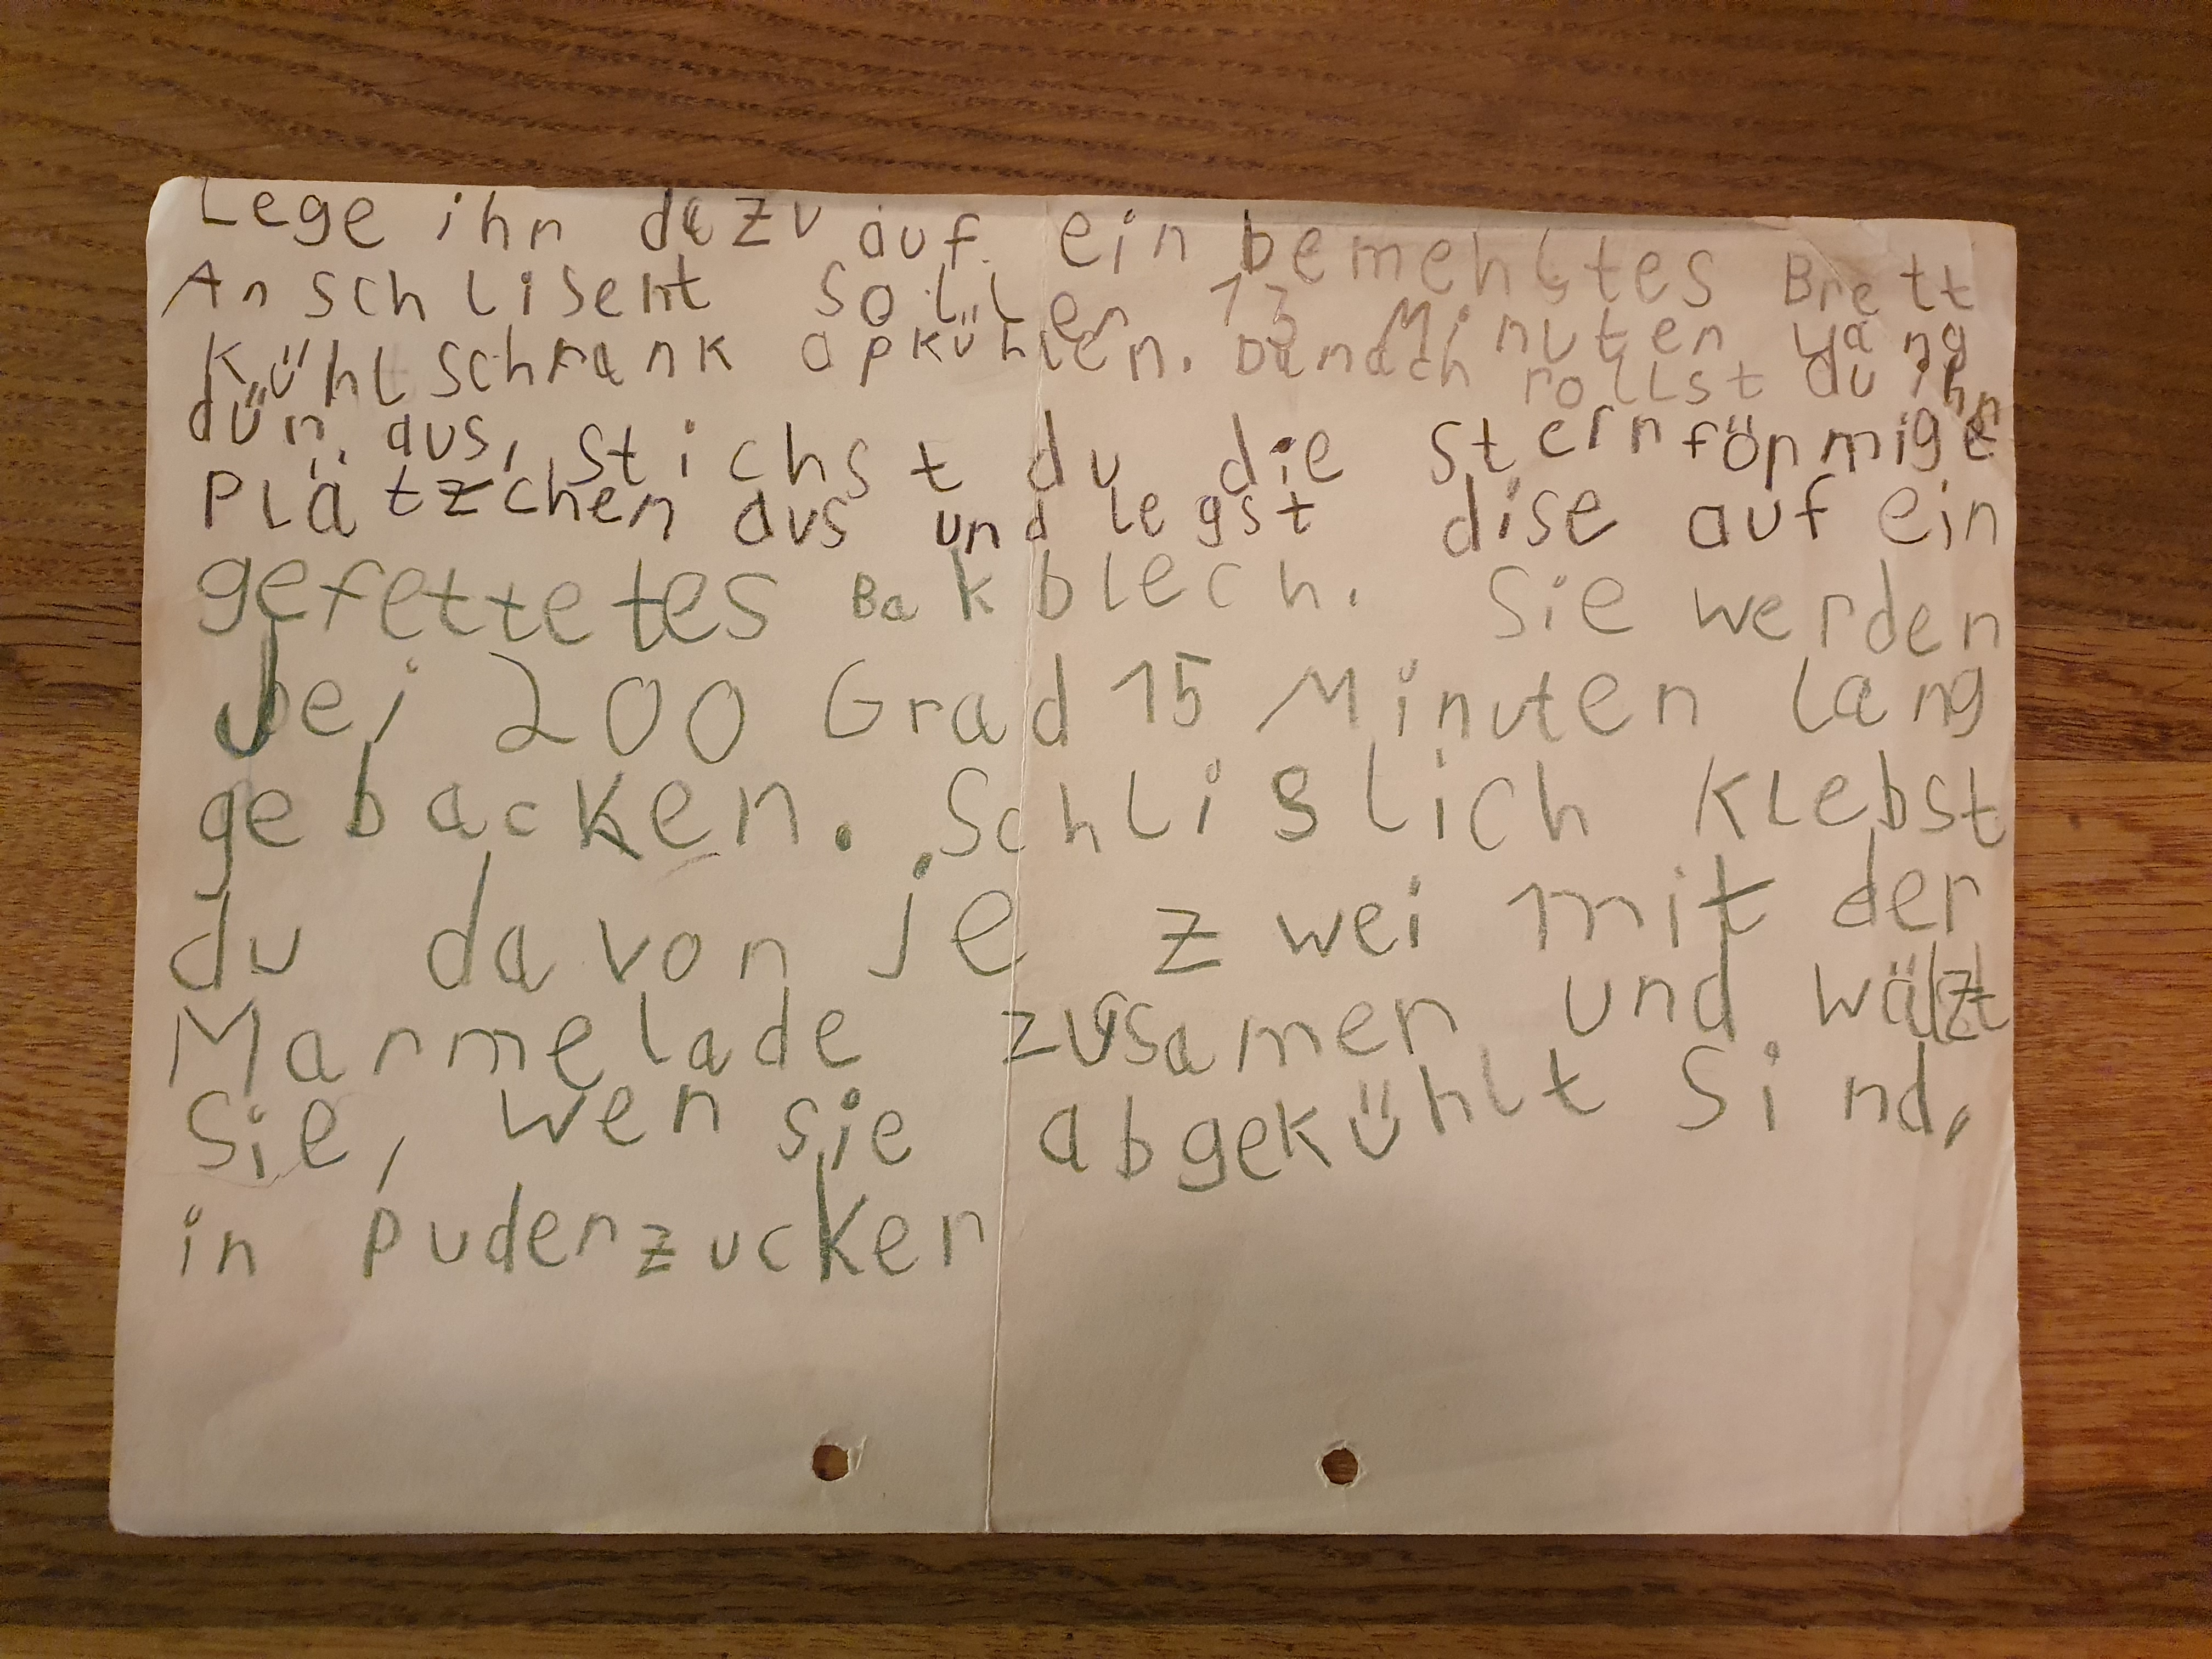 Lege ihn dazu auf ein bemehltes Brett
Anschlisent soll er 13 Minuten lang
Kühlschrank apkühlen. Danach rollst du ihn
dün aus, stichst du die sternförmige
Plätzchen aus und legst dise auf ein
gefettetes Bakblech. Sie werden
bei 200 Grad 15 Minuten lang
gebacken. Schlislich klebst
du davon je zwei mit der
Marmelade zusamen und wälzt
Sie, wen sie abgekühlt Sind,
in puderzucker